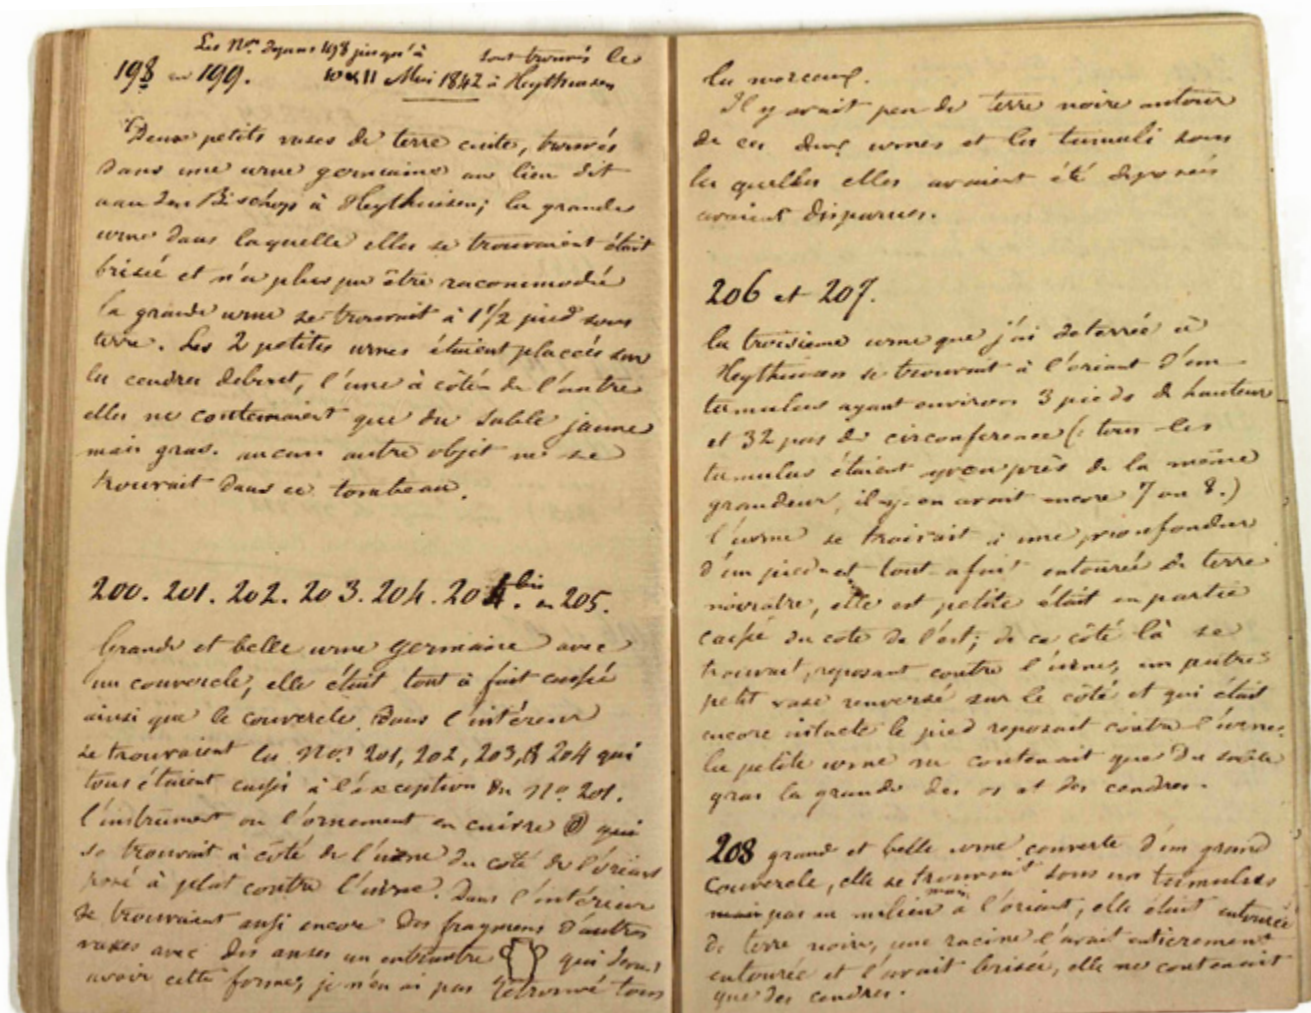 Les Nos. depuis 198 jusqu'à sont trouvés le
198 en 199. 10 & 11 Mai 1842 à Heythuisen
Deux petits vases de terre cuite, trouvés
dans une urne germaine au lieu dit
aan den Bischop à Heythuisen; la grande
urne dans laquelle elles se trouvaient était
brisée et n'a plus pu être racommodée
la grande urne se trouvait à 1 1/2 pied sous
terre. Les 2 petites urnes étaient placées sur
les cendres debout, l'une à côté de l'autre
elles ne contenaient que du sable jaune
mais gras. aucun autre objet ne se
trouvait dans ce tombeau.
200. 201. 202. 203. 204. 204.bis en 205.
Grande et belle urne germaine avec
un couvercle, elle était tout à fait cassée
ainsi que le couvercle. Dans l'intérieur
se trouvaient les Nos. 201, 202, 203, & 204 qui
tous étaient cassés à l'exception du No. 201.
l'instrument ou l'ornement en cuivre qui
se trouvait à côté de l'urne du coté de l'orient
posé à plat contre l'urne. Dans l'intérieur
se trouvaient aussi encore des fragmens d'autres
vases avec des anses un entr'autre qui
avoir cette forme, je n'en ai pas retrouvé tous
les morceaux.
Il y avait peu de terre noire autour
de ces deux urnes et les tumuli sous
les quelles elles avaient été deposées
avaient disparues.
206 et 207.
la troisieme urne que j'ai deterrée à
Heythuisen se trouvait à l'orient d'un
tumulus ayant environ 3 pieds de hauteur
et 32 pas de circonference (: tous les
tumulus étaient apeu près de la même
grandeur, il y en avait encore 7 ou 8.)
l'urne se trouvait à une prefondeur
d'un pied et tout afait entourée de terre
noiratre, elle est petite était en partie
cassé du coté de l'est; de ce côté là se
trouvait, reposant contre l'urne, un autre
petit vase renversé sur le côté et qui était
encore intacte le pied reposant contre l'urne.
la petite urne ne contenait que du sable
gras la grande des os et des cendres.
208 grand et belle urne couverte d'un grand
couvercle, elle se trouvait sous un tumulus
mais pas au milieu mais à l'orient, elle était entourée
de terre noire, une racine l'avait entierement
entourée et l'avait brisée, elle ne contenait
que des cendres.